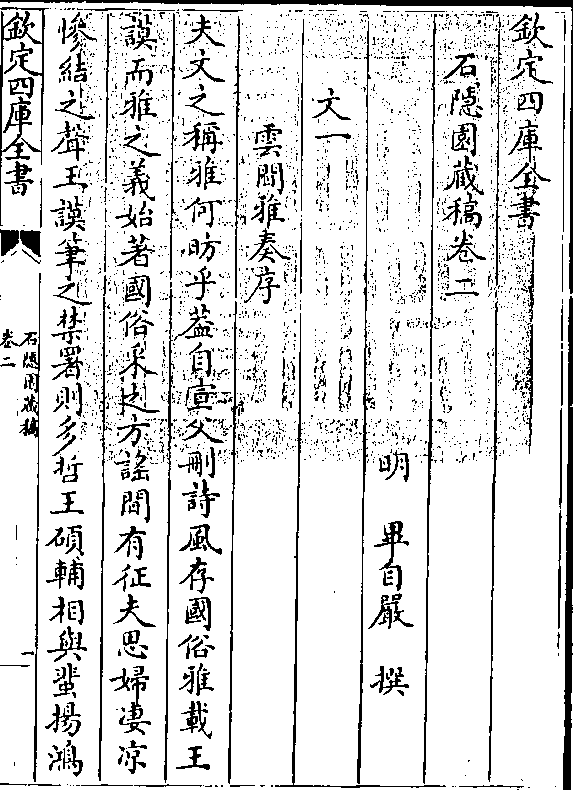 欽定四庫全書
石隱園藏稿卷二
明　畢自嚴　撰
文一
雲間雅奏序
夫文之稱雅何昉乎葢自宣父刪詩風存國俗雅載王
謨而雅之義始著國俗采之方謠間有征夫思婦凄凉
慘結之聲王謨筆之禁署則多哲王碩輔相與蜚揚鴻
欽定四庫全書
石隱園藏稿
卷二
一